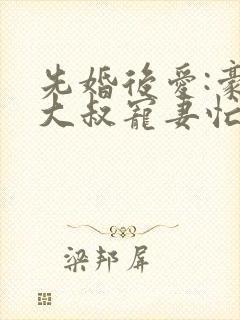 先婚後愛:豪
大叔寵妻忙
梁邦屏